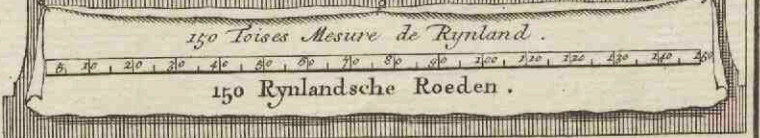 150 Toises Mesure de Rynland .
5 10 20 30 40 50 60 70 80 90 100 110 120 130 140 150
150 Rynlandsche Roeden .